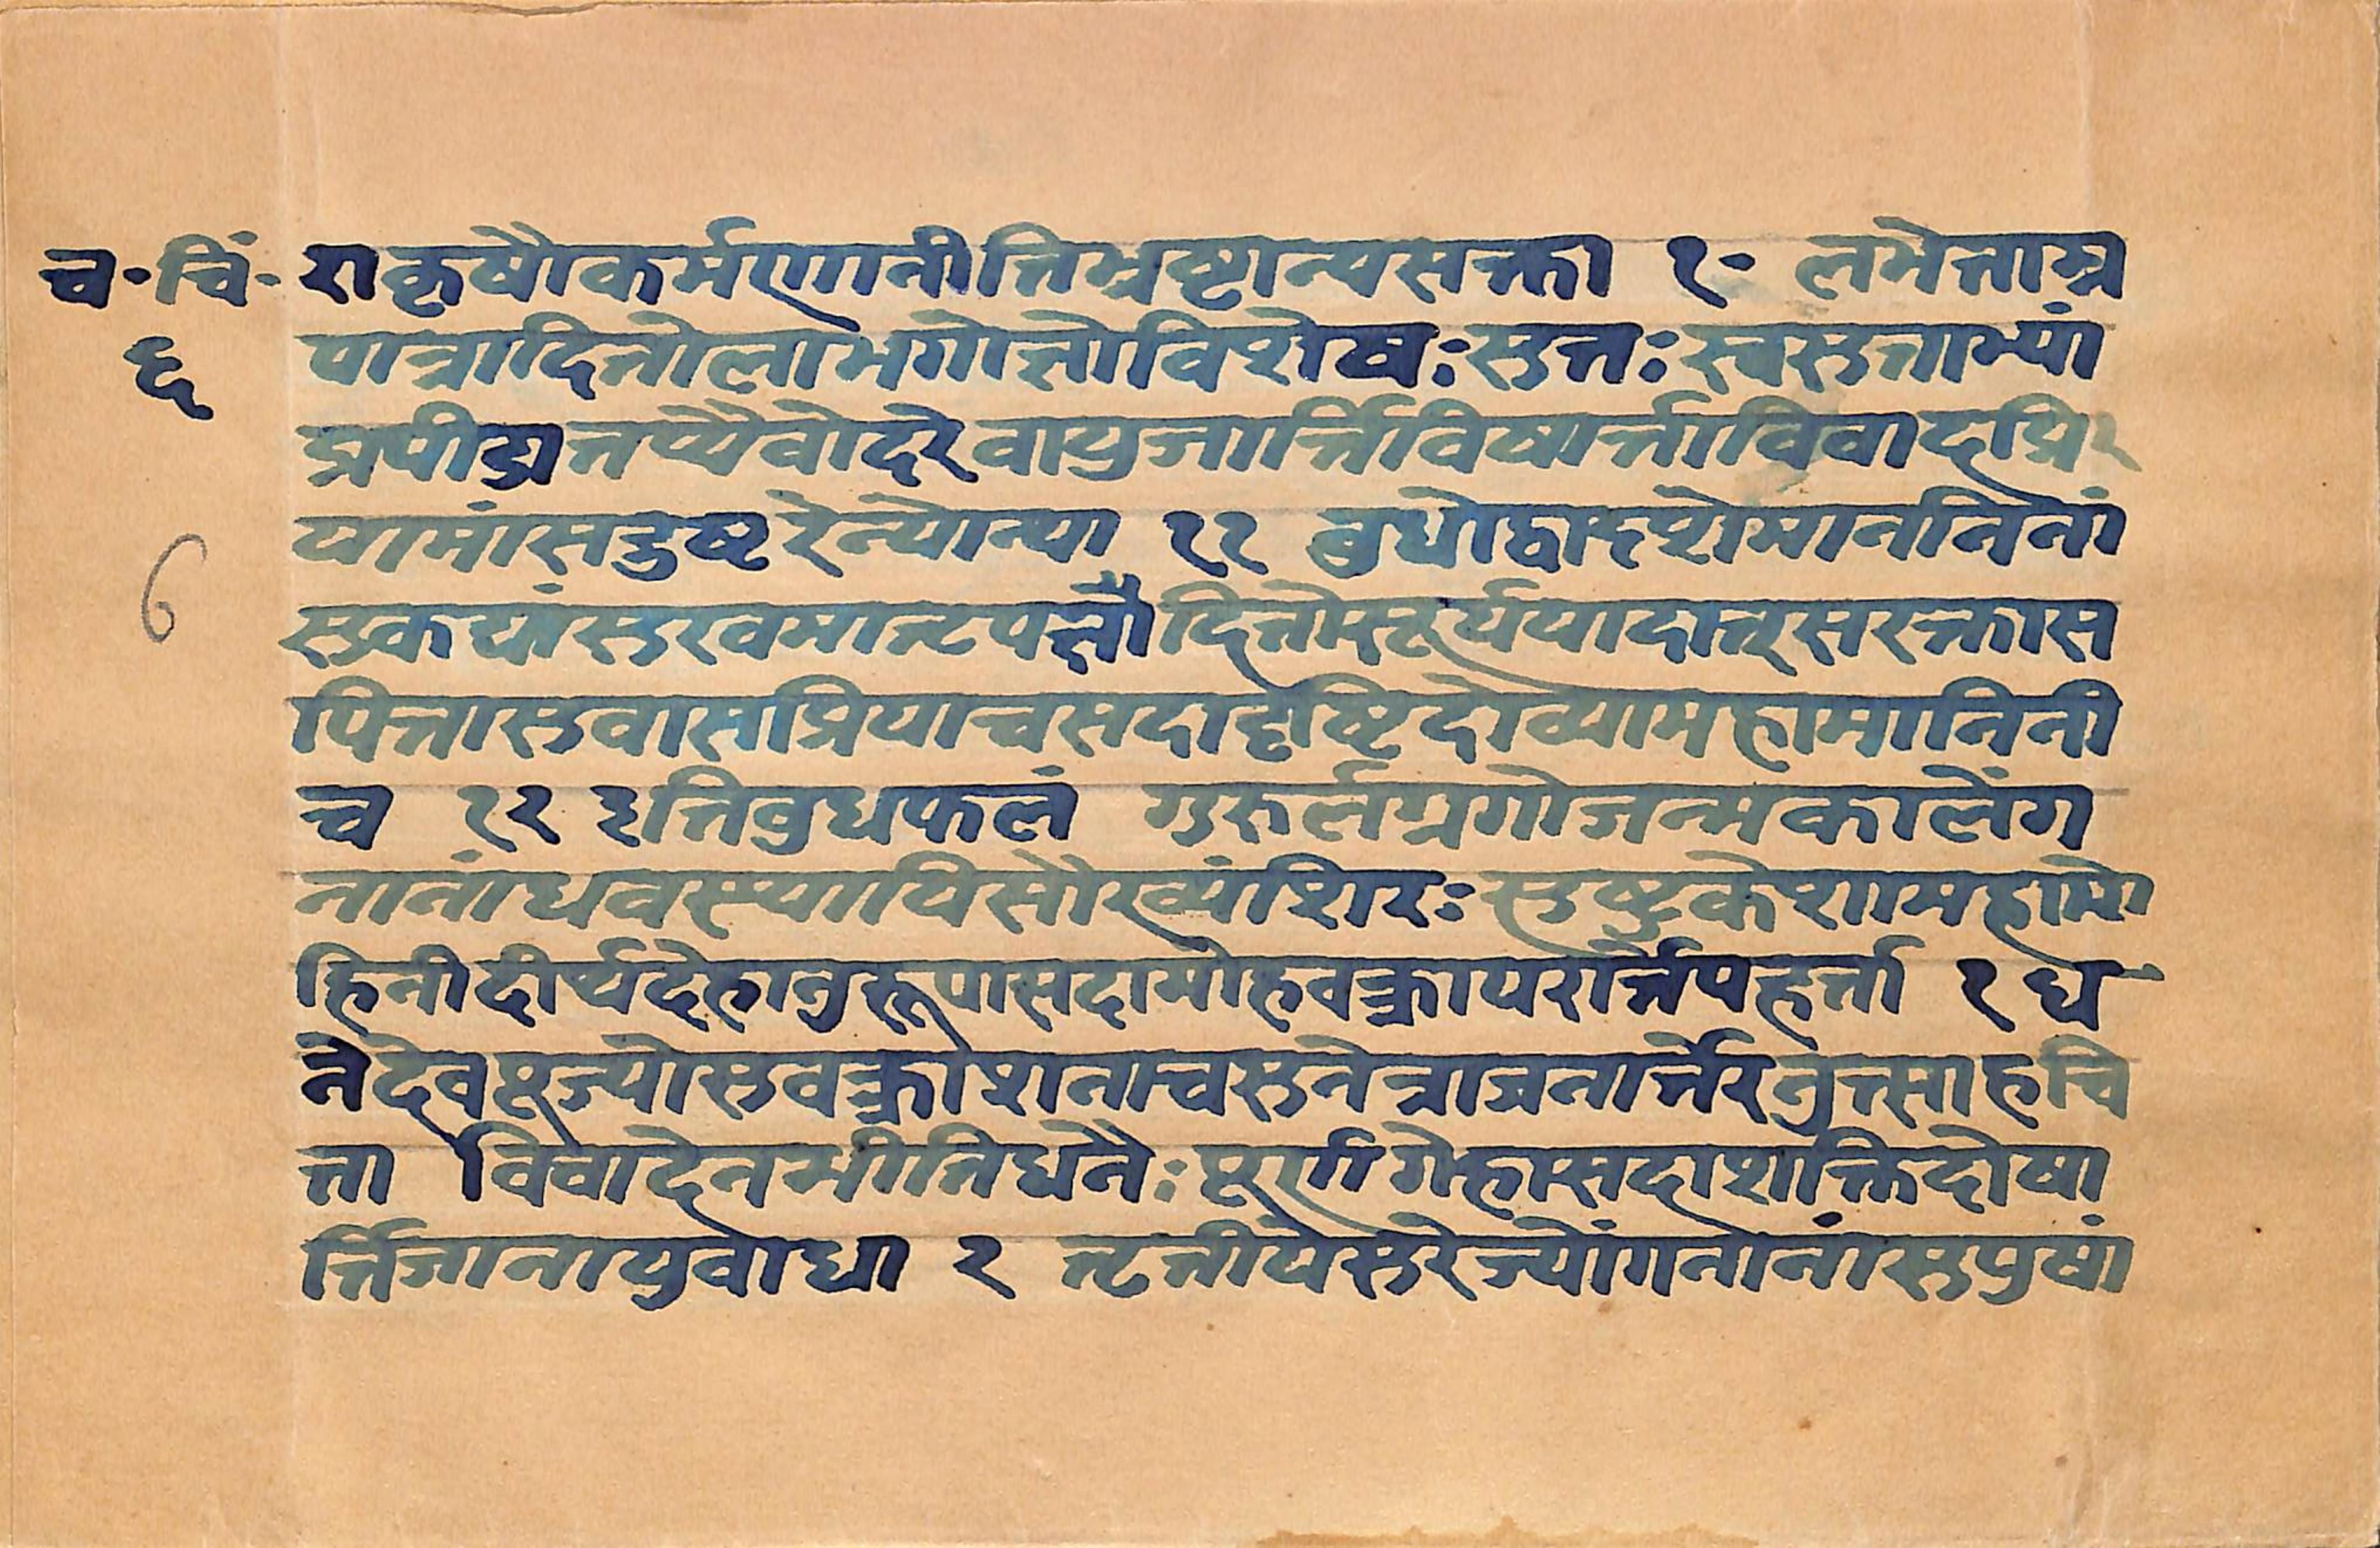 च॰ चिं॰
६
6
राकृषौकर्मणानीतिभ्रष्टान्यसक्ता १॰ लभेत्ताम्र
पात्रादितोलाभगोज्ञोविशेषः सुतः स्वसुताभ्यां
प्रपीड्य तप्यैवोदरे वायुजार्तिविषार्त्ताविवादप्रि
यामांसदुष्टरेन्योन्या ११ बुधोद्वादशेमाननिनां
सुकद्यांसुखमान्टपत्तौदितोसूर्यपादात् सरक्तास
पित्तासुवासप्रियाचसदादृष्टिदोव्यामहामानिनी
च १२ इतिबुधफलं गुरुर्लग्नगोजन्मकालेंग
नानांधवस्यापिसौख्यंशिरः सुष्टुकेशामहामो
हिनीदीर्घदेहानुरूपासदामोहवक्त्रापरार्त्तेपहर्त्ता १ ध
नेदेवपूज्योसुवक्त्राशनाचसुनेत्राजनार्त्तेरनुत्साहचि
त्ता विवादेनभीतिधनैः पूर्णगेहासदाशक्तिदोषा
र्त्तिजानायुबाधा २ तृतीयेसुरेज्योंगनानांसुपुषां